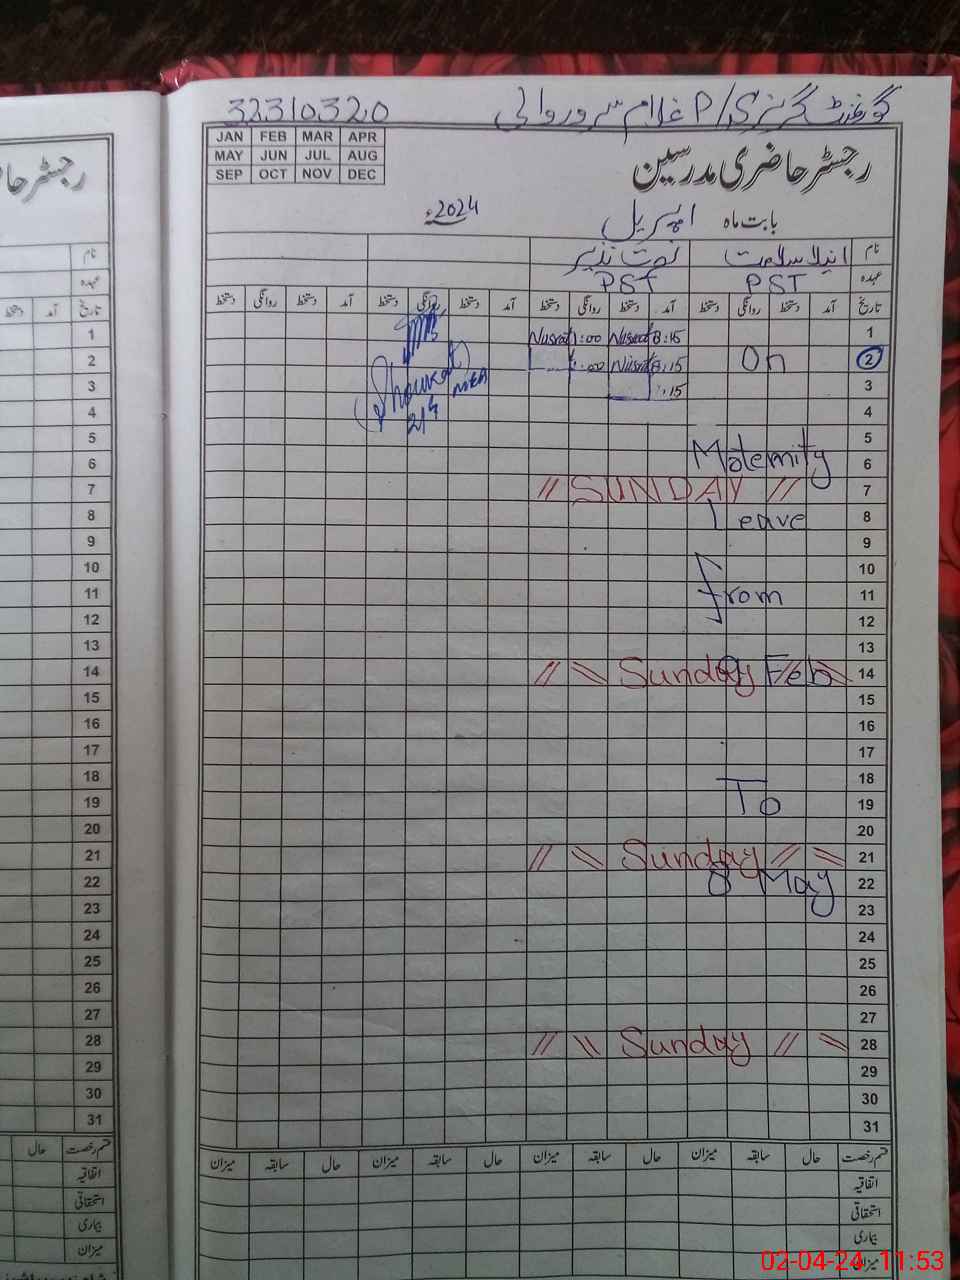 32310320 گورنمنٹ گرلز P/S غلام سرور والی
JAN FEB MAR APR
MAY JUN JUL AUG
SEP OCT NOV DEC
رجسٹر حاضری مدرسین
بابت ماہ اپریل 2024ء
نام انیلا سلامت نصرت نذیر
عہدہ PST PST
تاریخ آمد دستخط روانگی دستخط آمد دستخط روانگی دستخط آمد دستخط روانگی دستخط آمد دستخط روانگی دستخط
1 8:15 Nusrat 1:00 Nusrat
2 On 8:15 Nusrat 1:00
3 :15
Shoukat
MEA
21
4
5
6 Maternity
7 // SUNDAY //
8 Leave
9
10
11 from
12
13
14 // \\ Sunday // \\
Feb
15
16
17
18
19 To
20
21 // \\ Sunday // \\
22 8 May
23
24
25
26
27
28 // \\ Sunday // \\
29
30
31
قسم رخصت حال سابقہ میزان حال سابقہ میزان حال سابقہ میزان حال سابقہ میزان
اتفاقیہ
استحقاقی
بیماری
میزان
رجسٹر حا
نام
عہدہ
تاریخ آمد دستخط
1
2
3
4
5
6
7
8
9
10
11
12
13
14
15
16
17
18
19
20
21
22
23
24
25
26
27
28
29
30
31
قسم رخصت حال
اتفاقیہ
استحقاقی
بیماری
میزان
02-04-24 11:53